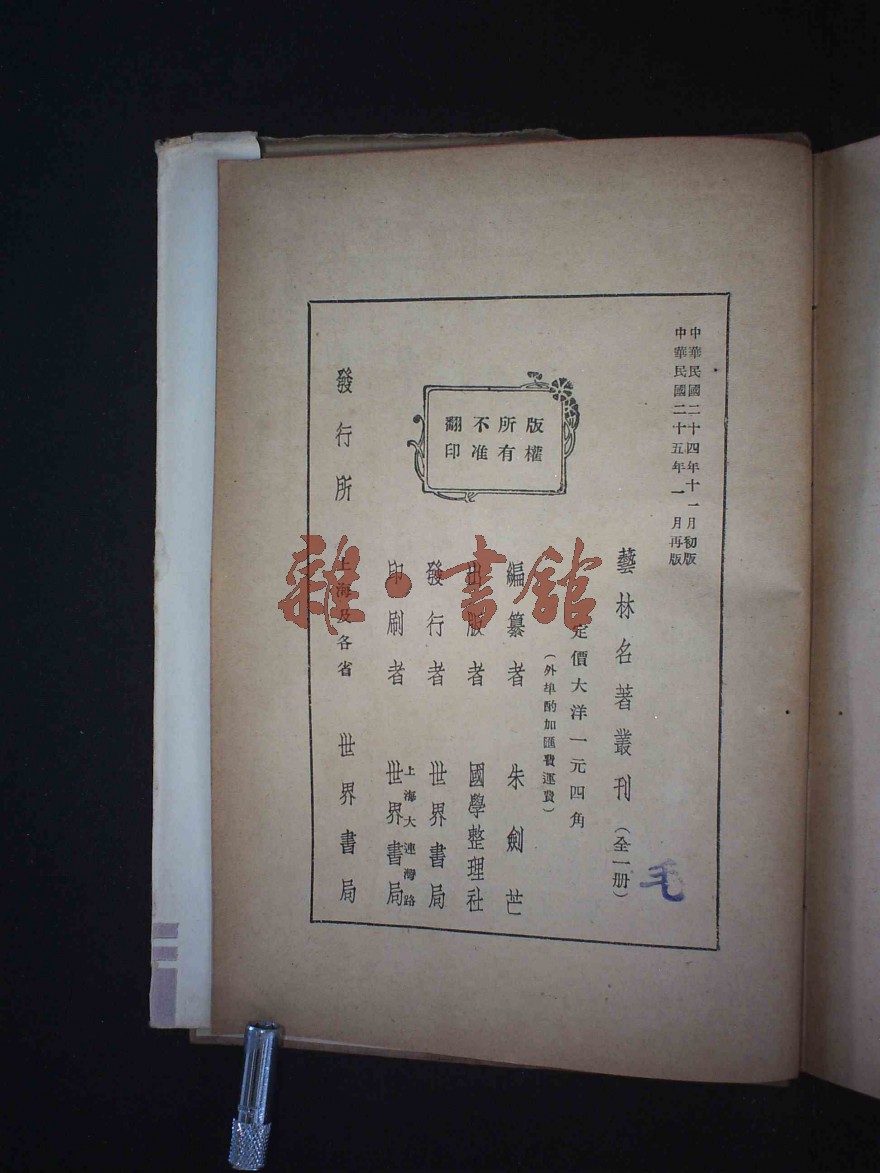 中華民國二十四年十一月初版
中華民國二十五年一月再版
藝林名著叢刊（全一册）
定價大洋一元四角
（外埠酌加匯費運費）
編纂者 朱劍芒
出版者 國學整理社
發行者 世界書局
印刷者 上海大連灣路 世界書局
發行所 上海及各省 世界書局
版權
所有
不准
翻印
毛
雜·書館